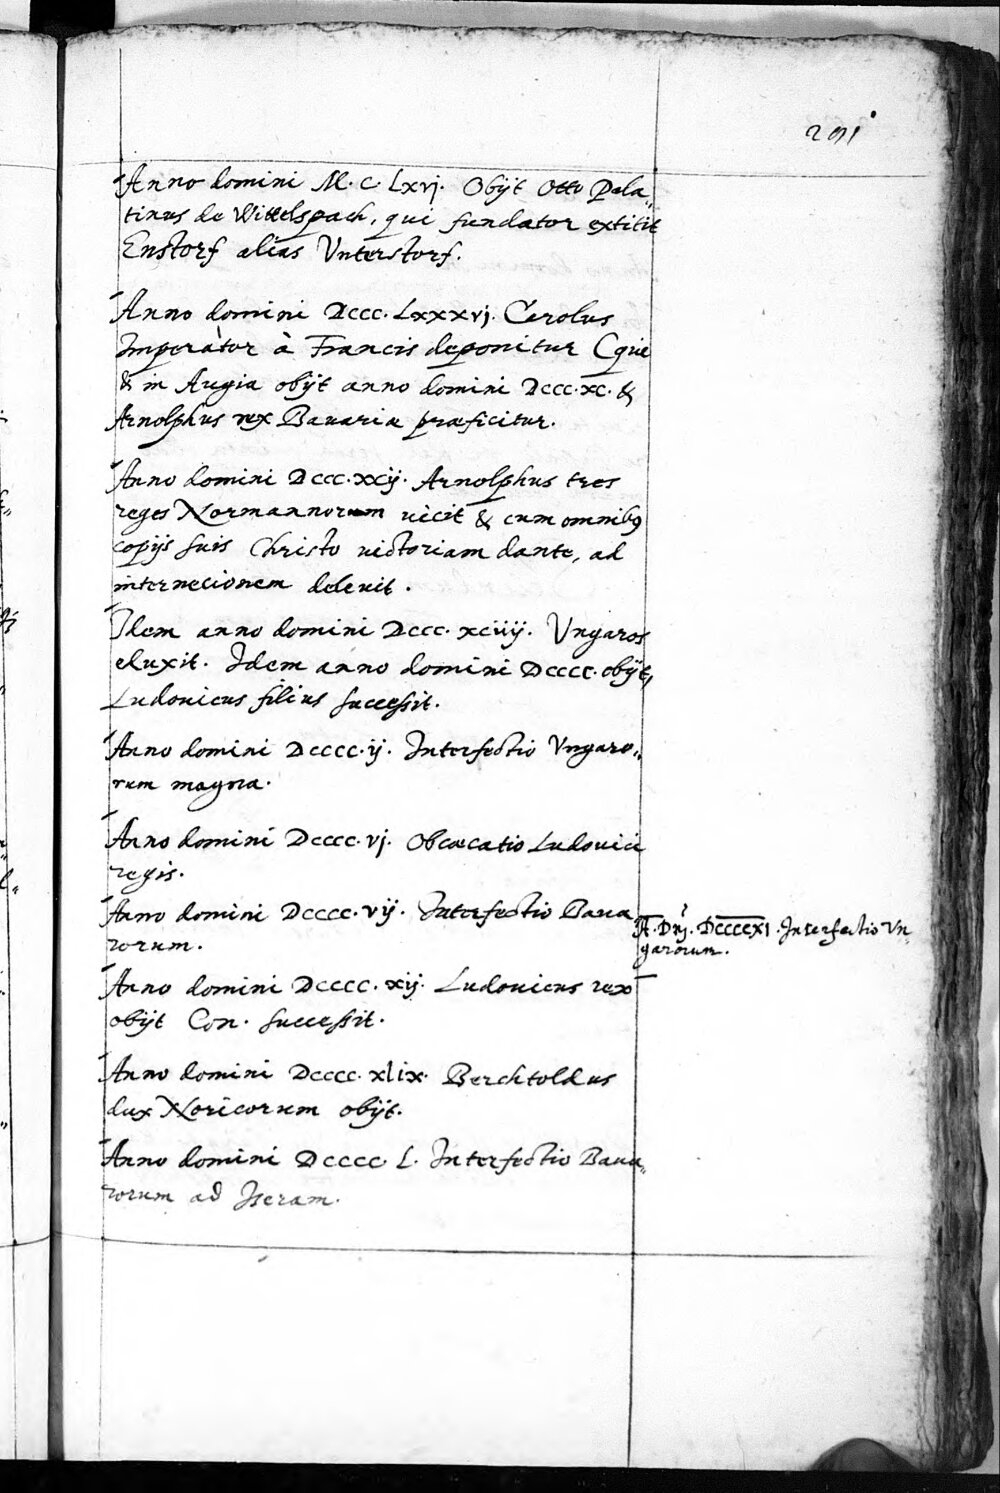 201
Anno domini M.C.Lxvj. Obijt Otto Pala„
tinus de Wittelspach, qui fundator extitit
Enstorf alias Vnterstorf.
Anno domini Dccc.Lxxxvj. Carolus
Imperàtor à Francis deponitur
& in Augia obijt anno domini Dccc.xc. &
Arnolphus rex Bauariæ præficitur.
Anno domini Dccc.xcij. Arnolphus tres
reges Normannorum uicit & cum omnibꝰ
copijs suis Christo uictoriam dante, ad
internecionem deleuit.
Idem anno domini Dccc.xciiij. Vngaros
eluxit. Idem anno domini Dcccc. obijt,
Ludouicus filius successit.
Anno domini Dcccc.ij. Interfectio Vngaro„
rum magna.
Anno domini Dcccc.vj. Obcæcatio Ludouici
regis.
Anno domini Dcccc.vij. Interfectio Baua
rorum.
A. Dnj. Dccccxj. Interfectio Vn„
garorum.
Anno domini Dcccc.xij. Ludouicus rex
obijt Con. successit.
Anno domini Dcccc.xlix. Berchtoldus
dux Noricorum obijt.
Anno domini Dcccc L. Interfectio Baua„
rorum ad Iseram.